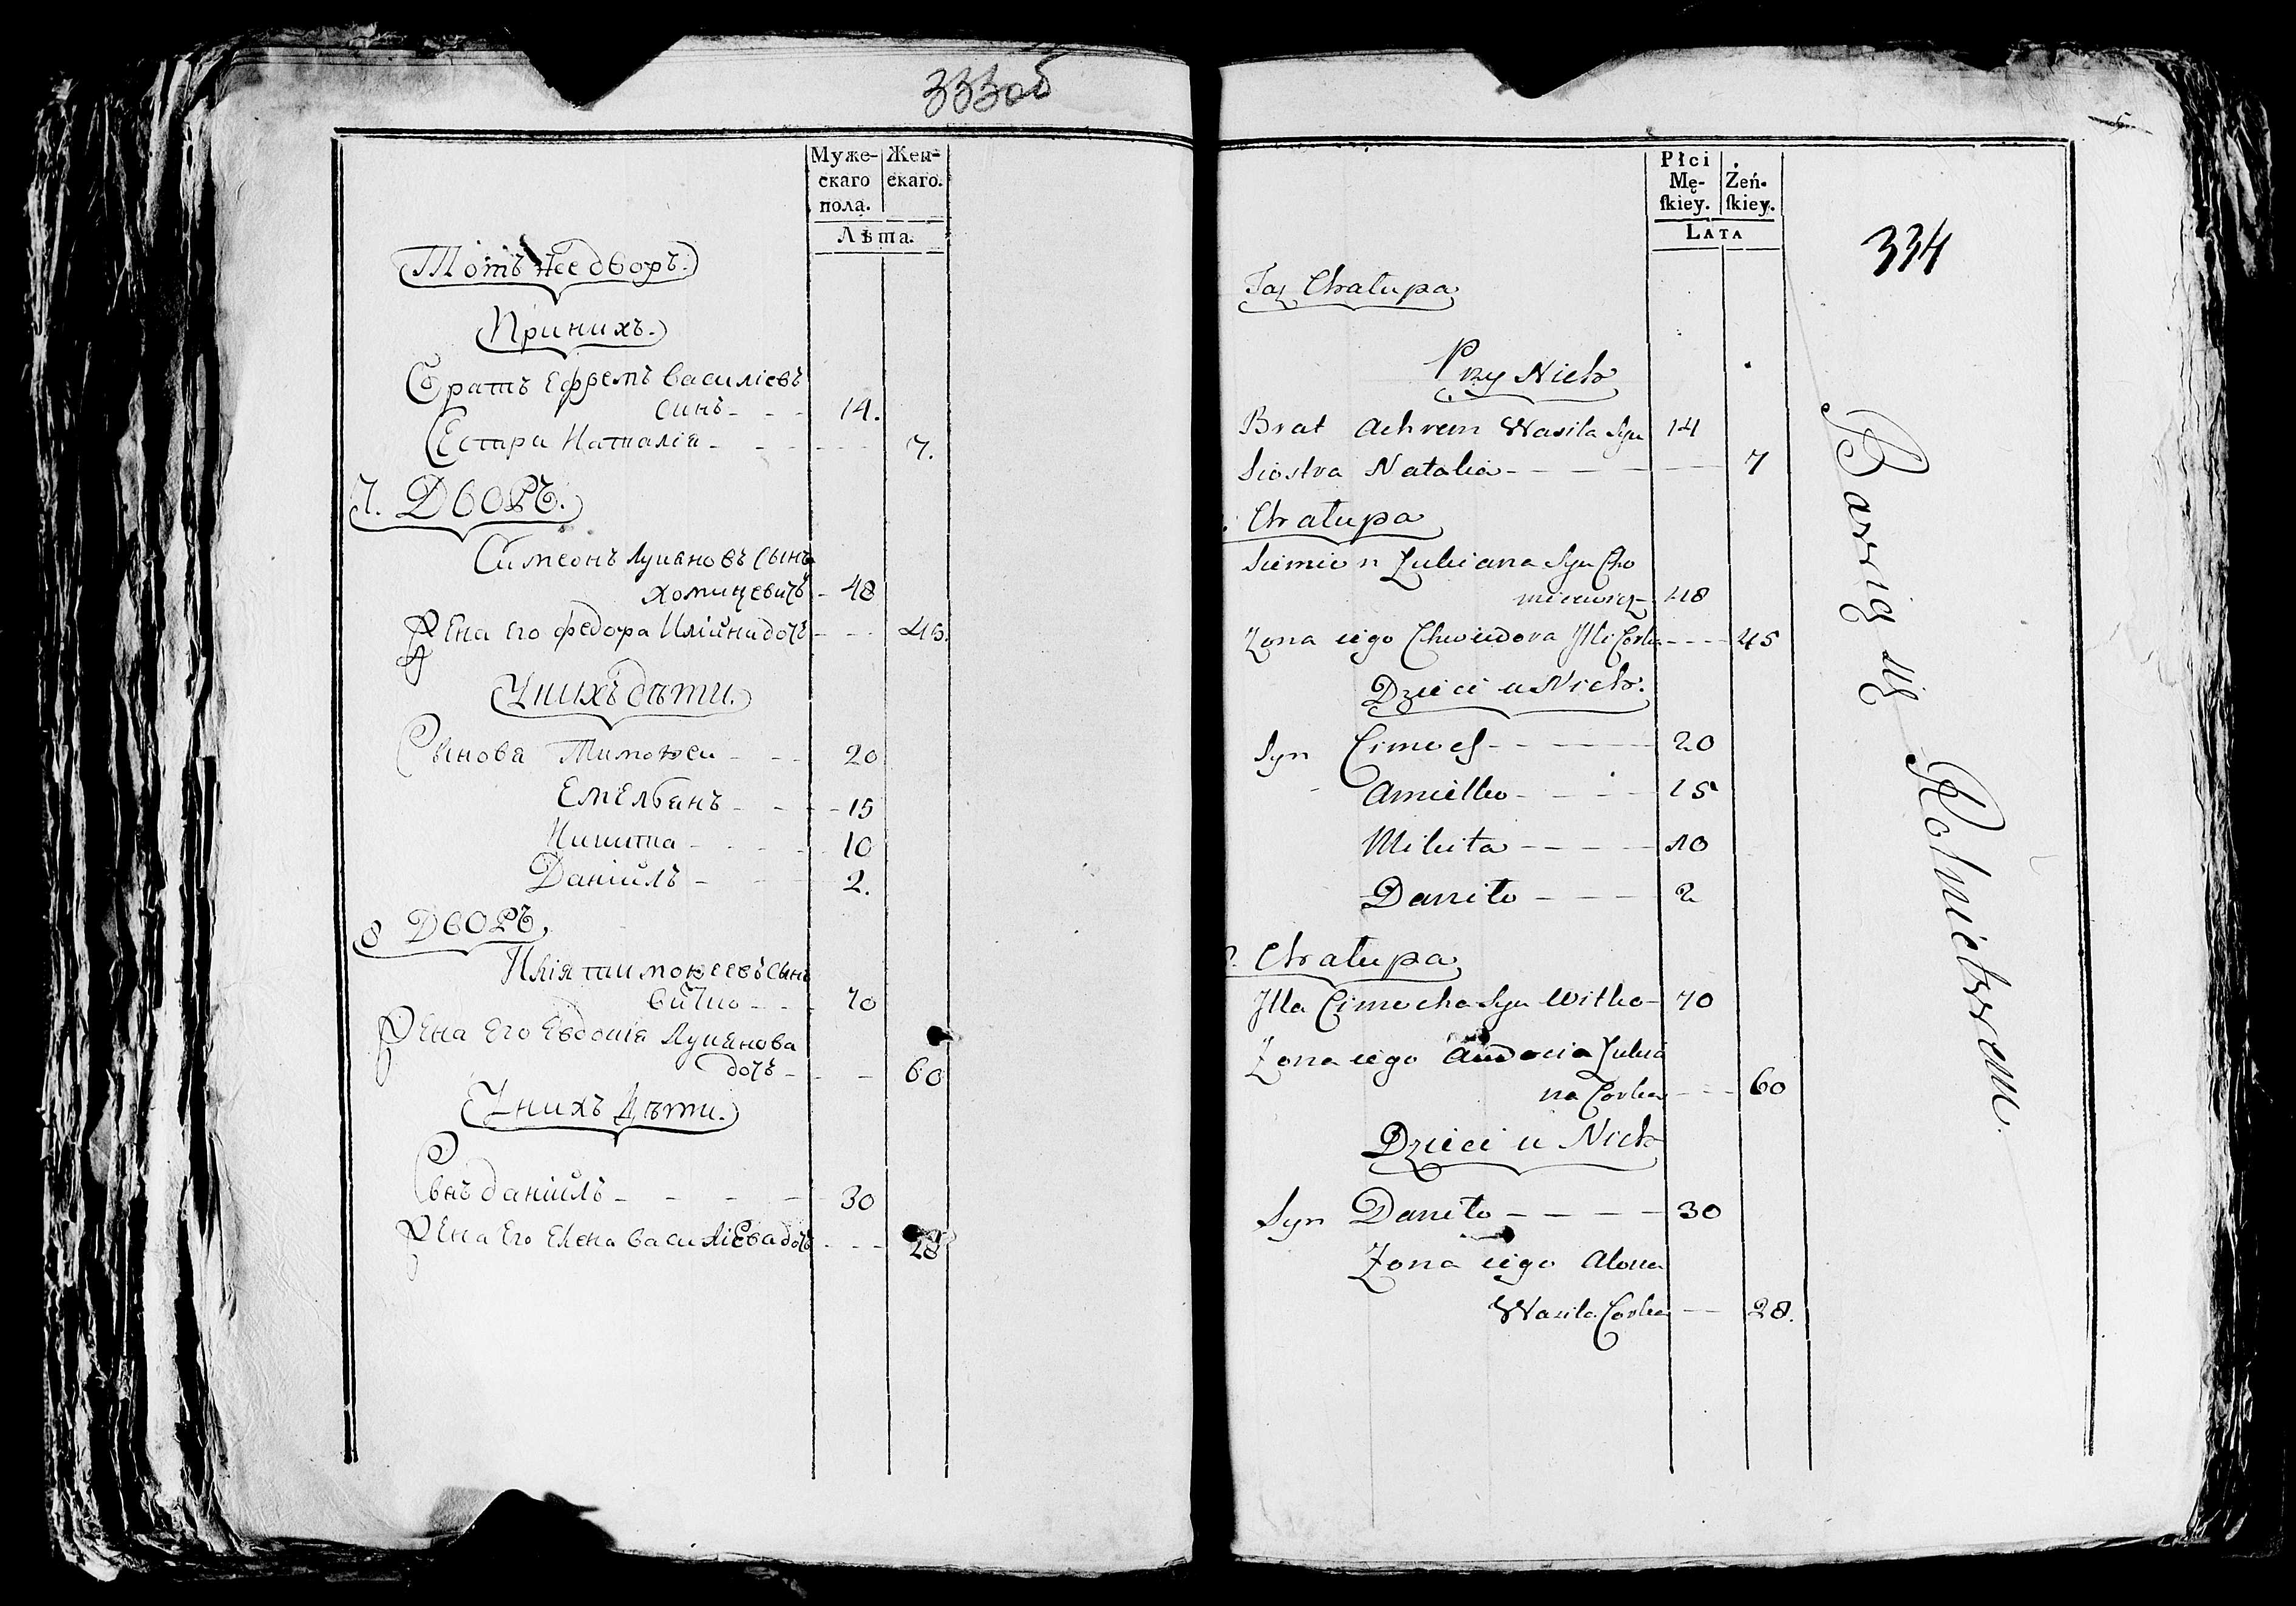 333об
Муже-
скаго
пола.
Жен-
скаго.
Лѣта.
Тотъ Же дворъ.
Принихъ.
Братъ Ефремъ Василіевъ
синъ - - - 14.
Сестра Наталія - - - 7.
7. ДВОРЪ.
Симеонъ Лукяновъ Сынъ
Хоминевичъ - 48
Жена Его Федора Илійни дочъ - - - 45.
Унихъ дѣти.
Синовя Тимоѳеи - - - 20
Емельянъ - - - 15
Никита - - - 10
Даніилъ - - 2.
8 ДВОРЪ,
Илія тимоѳеевъ Сынъ
витко - - - 70
Жена Его Евдокія Лукянова
дочъ - - - 60
Унихъ Дѣти.
Сынъ даніилъ - - - 30
Жена Его Елена василіева дочъ - - - 28
Płci
Mę-
skiey.
Żeń-
skiey.
LATA
334
Taż Chałupa
Przy Nich
Brat Achrem Wasila Syn 14
Siostra Natalia - - - 7
Chałupa
Siemion Łukiana Syn Cho
miniewicz - 48
Zona iego Chwiedora Jlli Corka - - - 45
Dzieci u Nich.
Syn Cimoch - - - 20
Amielko - - - 15
Mikita - - - 10
Daniło - - - 2
Chałupa
Jlla Cimocha Syn Witko - 70
Zona iego Audocia Łukia
na Corka - - - 60
Dzieci u Nich
Syn Daniło - - - 30
Zona iego Alona
Wasila Corka - - 28.